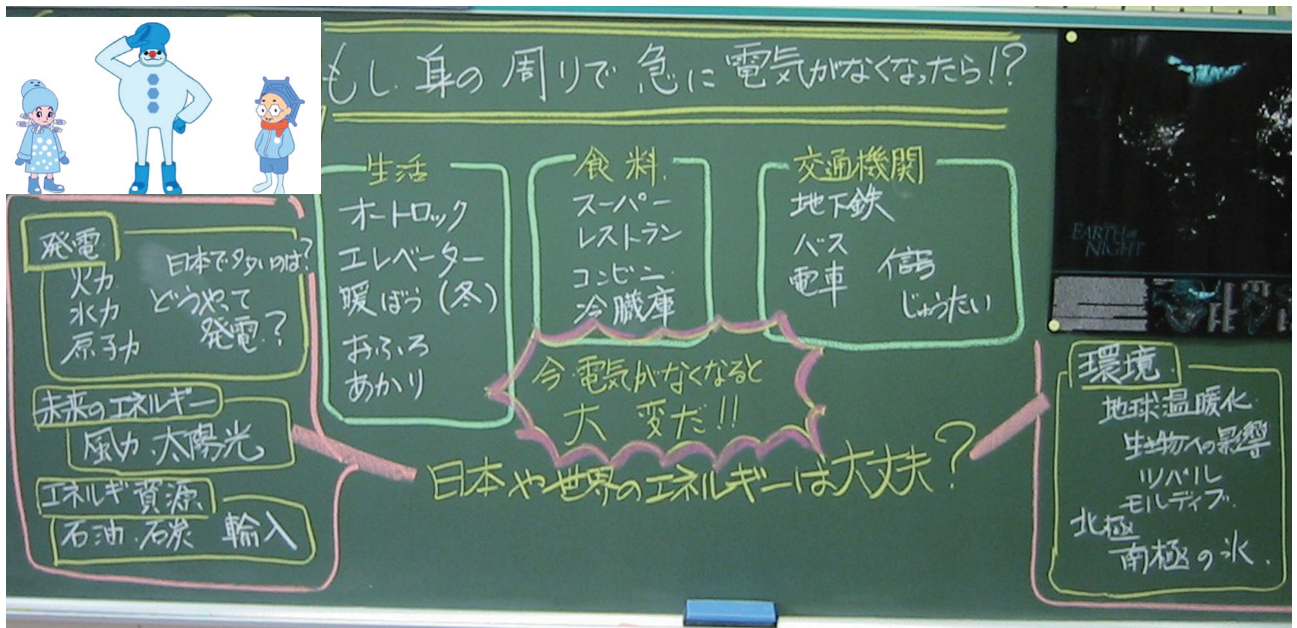 もし 身の周りで 急に 電気がなくなったら!?
生活
オートロック
エレベーター
暖ぼう(冬)
おふろ
あかり
食料
スーパー
レストラン
コンビニ
冷臓庫
交通機関
地下鉄
バス
電車
信号
じゅうたい
EARTH at
NIGHT
発電
火力
水力
原子力
日本で多いのは?
どうやって
発電?
未来のエネルギー
風力・太陽光
エネルギ資源
石油・石炭 輸入
今電気がなくなると
大変だ!!
日本や世界のエネルギーは大丈夫?
環境
地球温暖化
生物への影響
ツバル
モルディブ
北極
南極の氷